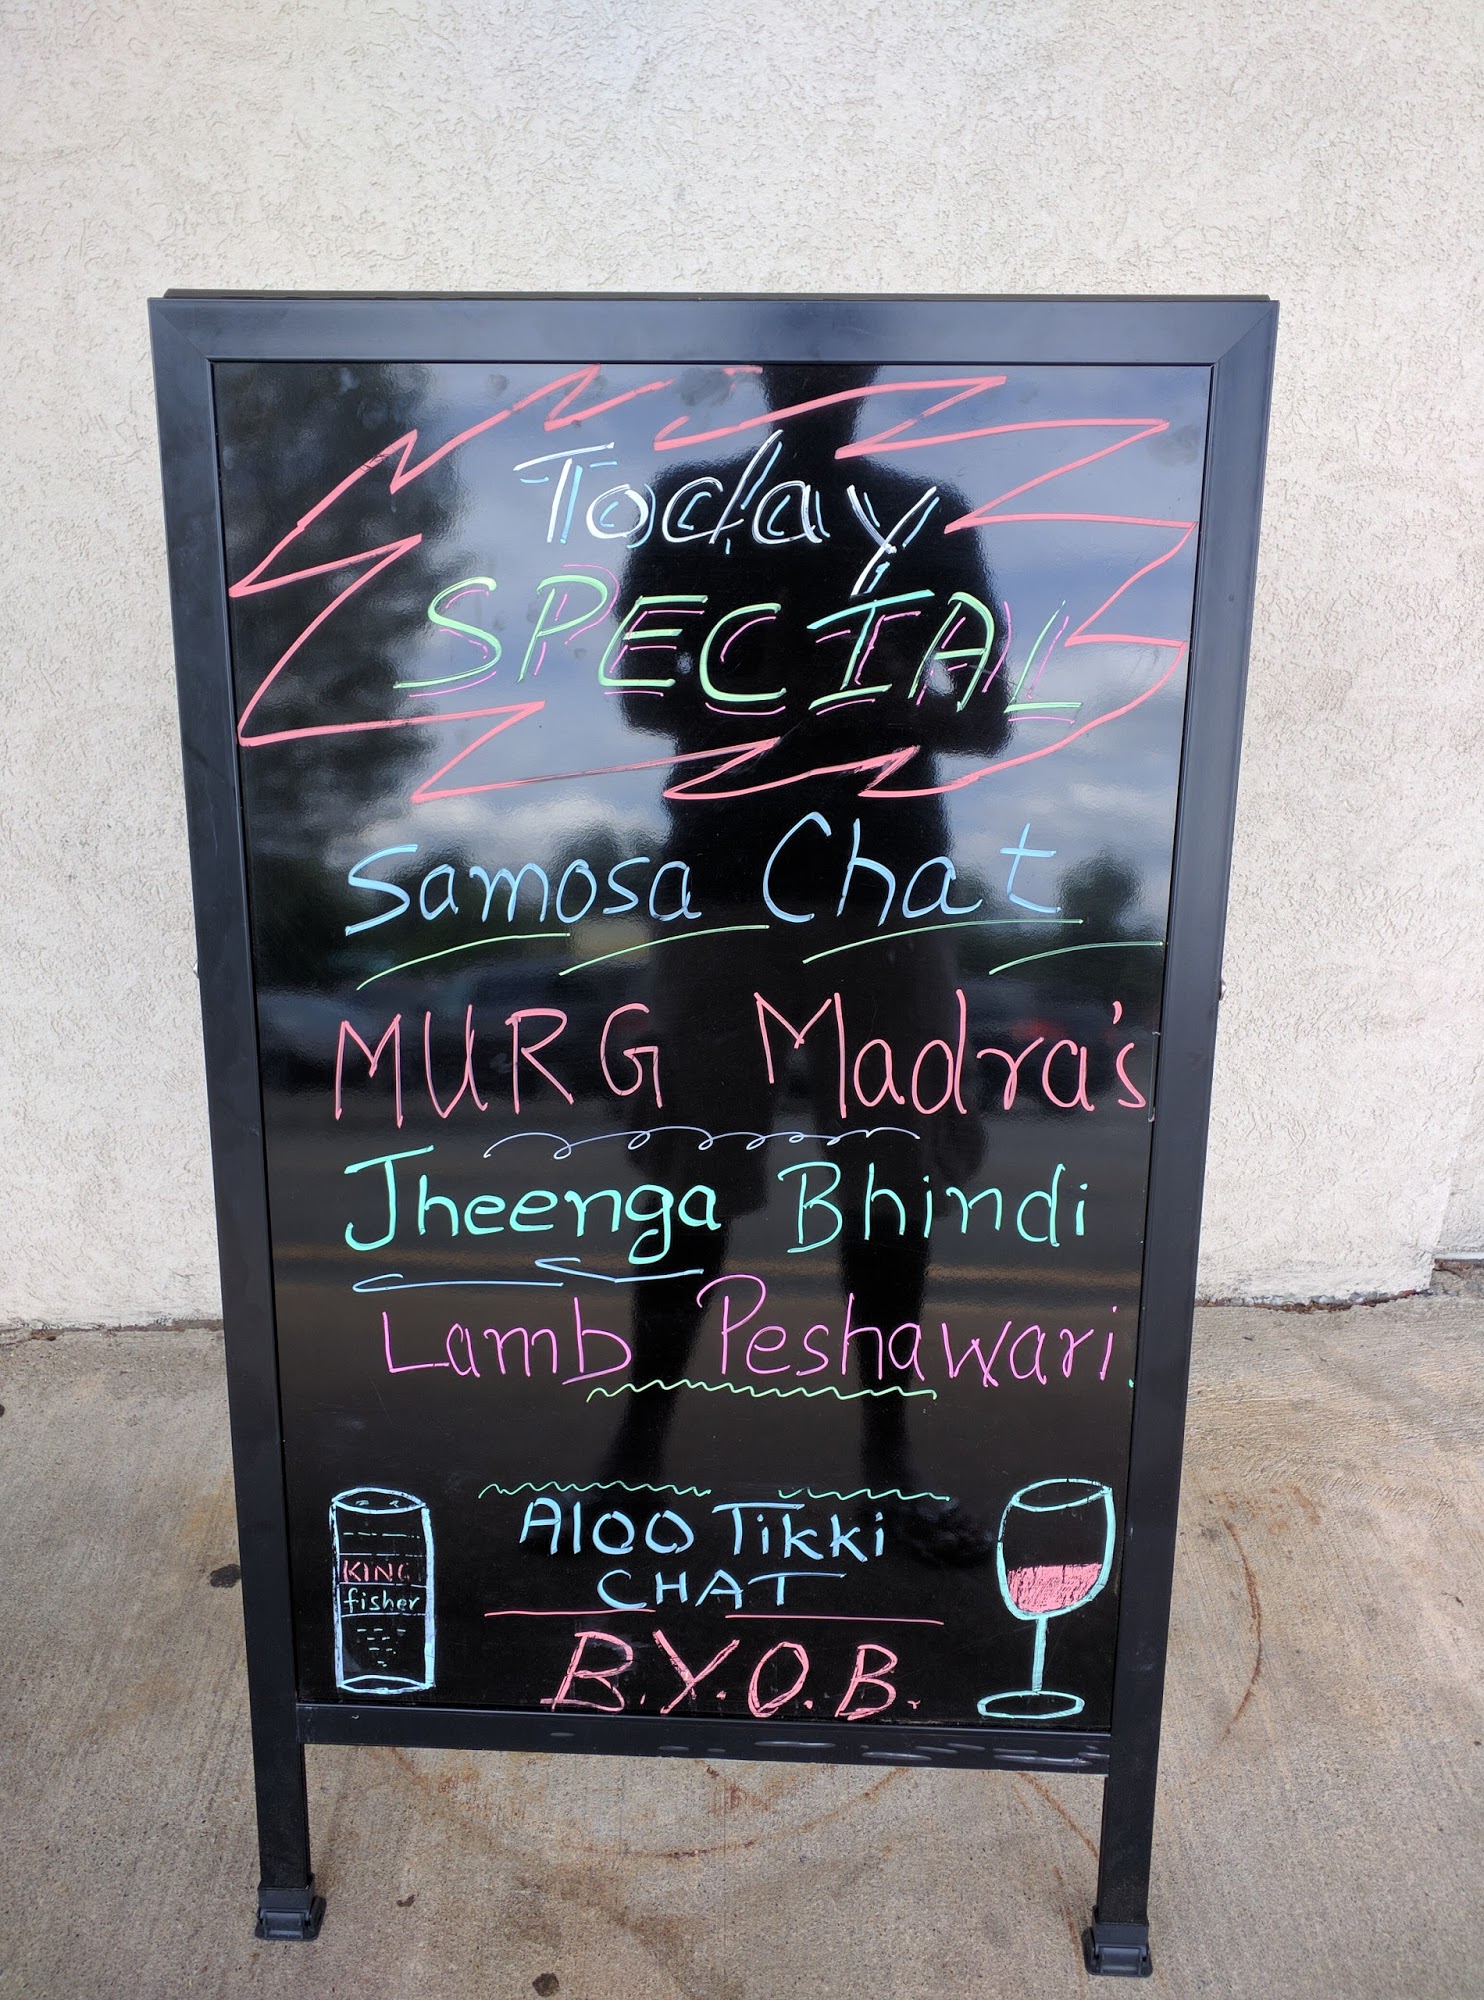 Today
SPECIAL
Samosa Chat
MURG Madra's
Jheenga Bhindi
Lamb Peshawari.
Aloo Tikki
CHAT
KING
fisher
B.Y.O.B.